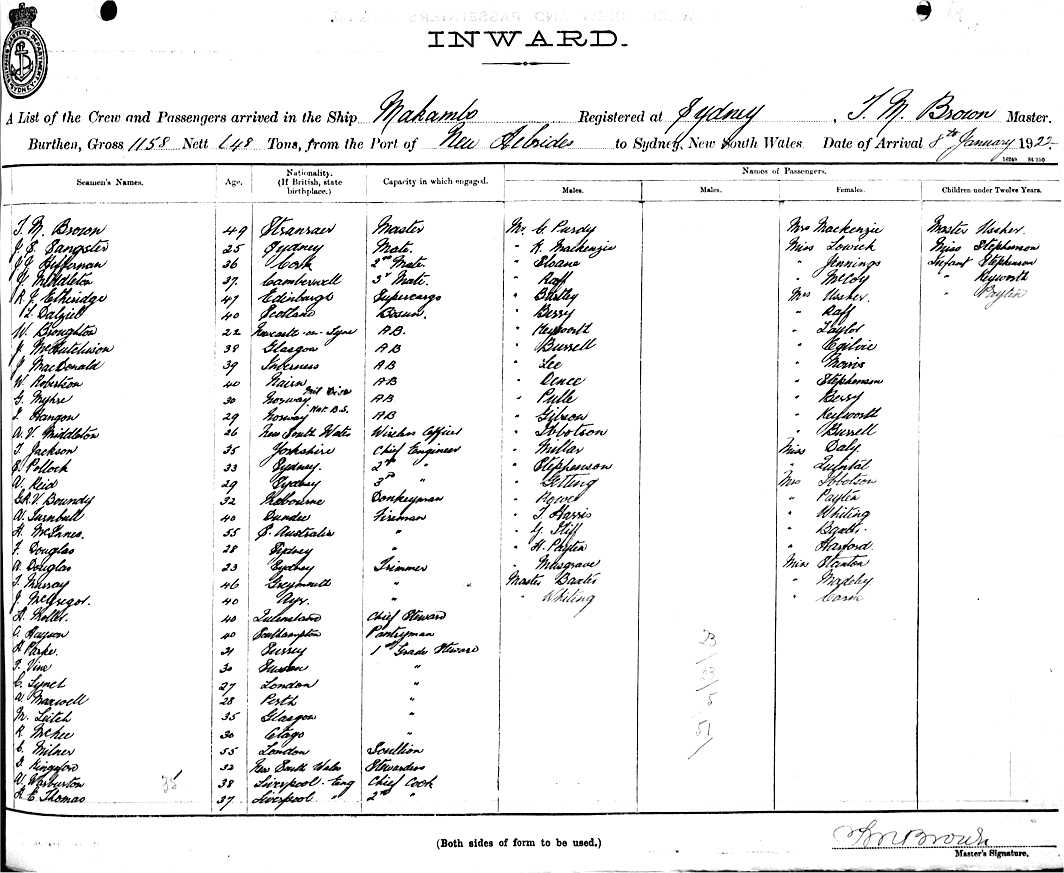 INWARD.
A List of the Crew and Passengers arrived in the Ship Makambo Registered at Sydney, T. M. Brown Master.
Burthen, Gross 1158 Nett 648 Tons, from the Port of New Hebrides to Sydney, New South Wales Date of Arrival 8th January 192
Names of Passengers.
Seamen's Names. Age. Nationality. (If British, state birthplace.) Capacity in which engaged. Males. Males. Females. Children under Twelve Years
T. M. Brown 49 Stranraer Master Mr. C. Purdy Mrs Mackenzie Master Ussher.
J. S. Sangster 25 Sydney Mate. " K. Mackenzie Miss Lowick Miss Stephenson
J. J. Heffernan 36 Cork 2nd Mate " Sloane " Jennings Infant Stephenson
Middleton 37. Camberwell 3rd Mate. " Raff " McCoy " Keyworth
R. J. Etheridge 47 Edinburgh Supercargo " Bartley Mrs Ussher. " Paylin
Dalziel 40 Scotland Bosun. " Berry " Raff
W. Broughton 22 Newcastle-on-Tyne A.B. " Keyworth " Taylor
J. McHutchison 38 Glasgow A B " Burrell " Ogilvie
J. MacDonald 39 Inverness A B " Lee " Morris
W. Robertson 40 Nairn A B " Dence " Stephenson
G. Myhre 30 Norway A B " Pulle " Berry
Hangon 29 Norway Nat. B.S. A B " Gibson " Keyworth
A. V. Middleton 26 New South Wales Wireless Officer " Ibbotson " Burrell
T. Jackson 35 Yorkshire Chief Engineer " Millar Miss Daly
Pollock 33 Sydney. 2nd " " Stephenson " Quintal
W. Reid 29 Sydney 3rd " " Getting Mrs Ibbotson
V. Boundy 32 Melbourne Donkeyman " Howes " Paylin
W. Turnbull 40 Dundee Fireman " T. Harris " Whiting
H. McInnes. 55 S. Australia " " G. Stiff " Baxter
F. Douglas 28 Sydney " " H. Paylin " Harford.
A. Douglas 23 Sydney Trimmer " Musgrave Miss Stanton
T. Murray 46 Greymouth " " Master Baxter "
J. McGregor. 40 Ayr. " " Whiting "
H. Mollet. 40 Queensland Chief Steward
Hayson 40 Southampton Pantryman
H. Parke. 31 Surrey 1st Grade Steward
F. Vine 30 Sussex "
C. Lynch 27 London "
W. Maxwell 28 Perth "
M. Leitch 35 Glasgow "
R. McKee 30 Otago "
C. Milner 55 London Scullion
D. Kingsford 32 New South Wales Stewardess
W. Warburton 38 Liverpool Eng Chief Cook
H. E. Thomas 37 Liverpool " 2nd "
35
(Both sides of form to be used.)
T M Brown
Master's Signature.